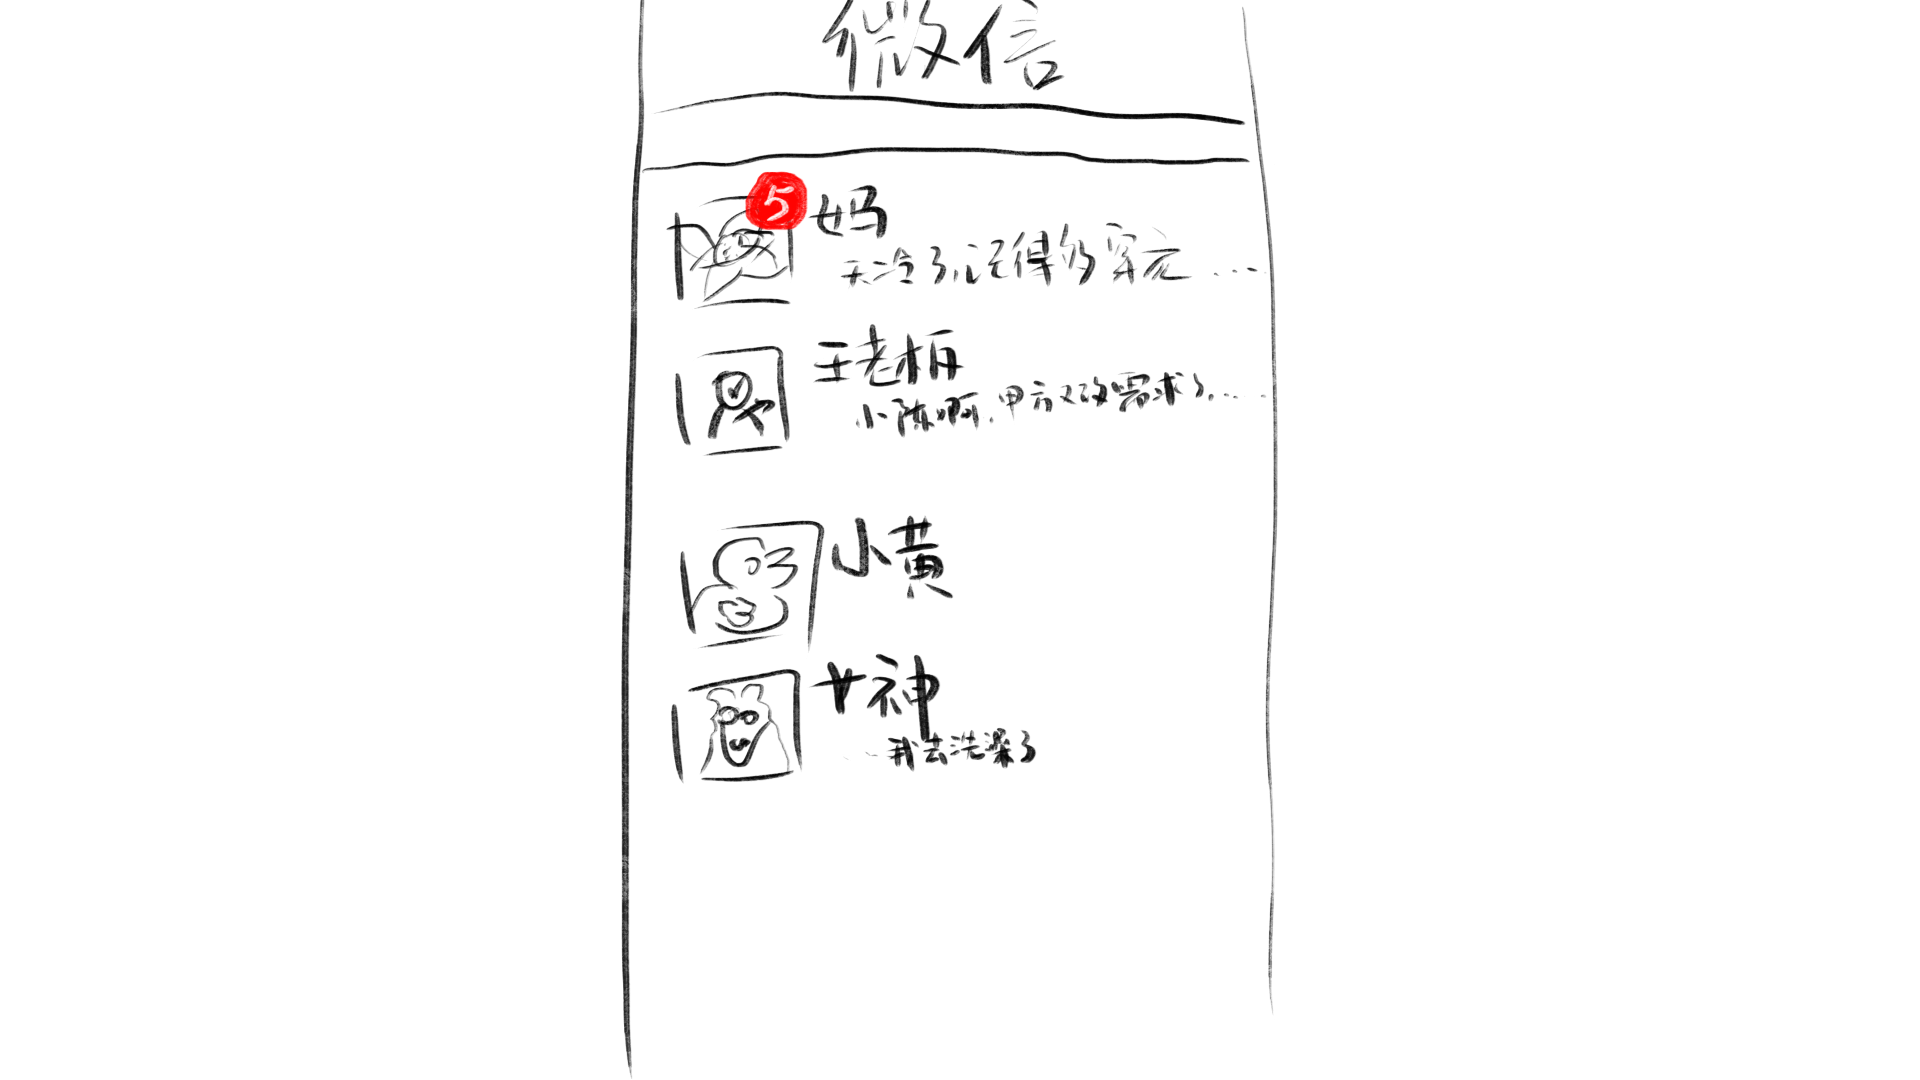 微信
5
妈
天冷了,记得多穿衣....
王老板
小陈啊,甲方又改需求了.....
小黄
女神
我去洗澡了